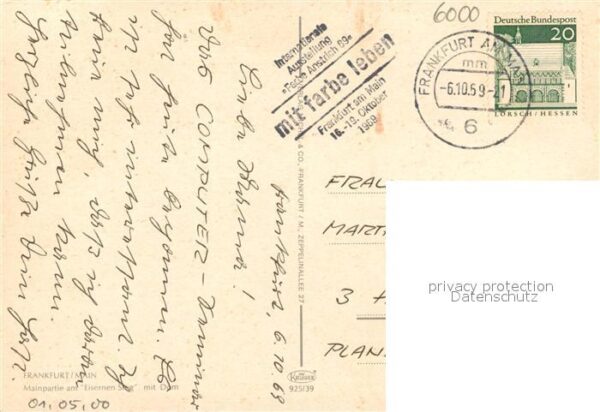 6000
Deutsche Bundespost
20
LORSCH/HESSEN
FRANKFURT AM MAIN
mm
-6.10.69-21
6
Internationale
Ausstellung
Farbe Anstrich 69
mit farbe leben
Frankfurt am Main
16.-19. Oktober
1969
Frankfurt, 6.10.69
Liebe Mama!
Das COMPUTER-Seminar
hat heute begonnen. Es
ist sehr interessant. Ich
freue mich, daß ich daran
teilnehmen kann.
Herzliche Grüße Dein
& CO., FRANKFURT/M., ZEPPELINALLEE 27
FRAU
MART
3 H
PLAN
privacy protection
Datenschutz
FRANKFURT/MAIN
Mainpartie am "Eisernen Steg" mit Dom
KRÜGER
925/39
01.05.00